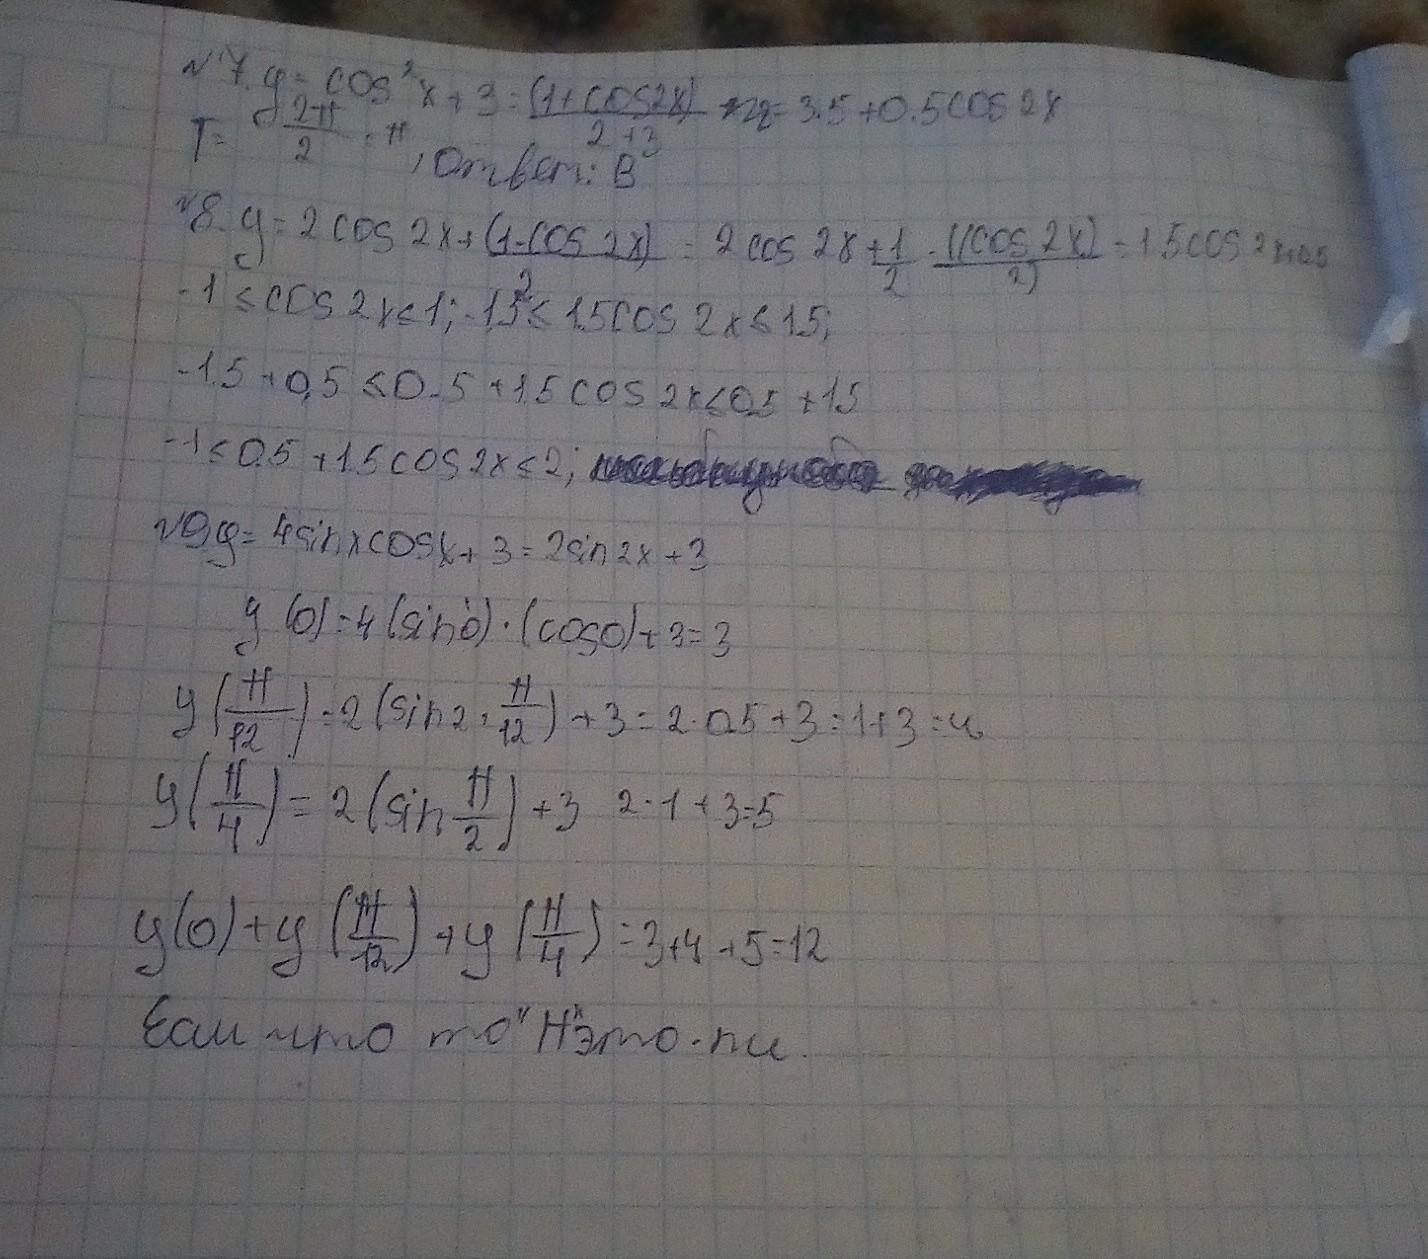 №7. y = cos²x + 3 = (1+cos2x)/2+3 = 3.5+0.5cos2x
T = 2π/2 · π, Ответ: В
№8. y = 2cos2x + (1-cos2x)/2 = 2cos2x + 1/2 - ((cos2x)/2) = 1.5cos2x+0.5
-1 ≤ cos2x ≤ 1; -1,5 ≤ 1.5cos2x ≤ 1.5;
-1.5 + 0,5 ≤ 0.5 + 1.5cos2x ≤ 0.5 + 1.5
-1 ≤ 0.5 + 1.5cos2x ≤ 2;
№9. y = 4sinxcosx + 3 = 2sin2x + 3
y(0) = 4(sin0)·(cos0) + 3 = 3
y(π/12) = 2(sin2·π/12) + 3 = 2·0.5 + 3 = 1+3 = 4
y(π/4) = 2(sin π/2) + 3 2·1 + 3 = 5
y(0) + y(π/12) + y(π/4) = 3+4+5=12
Если что то "π" это - пи.